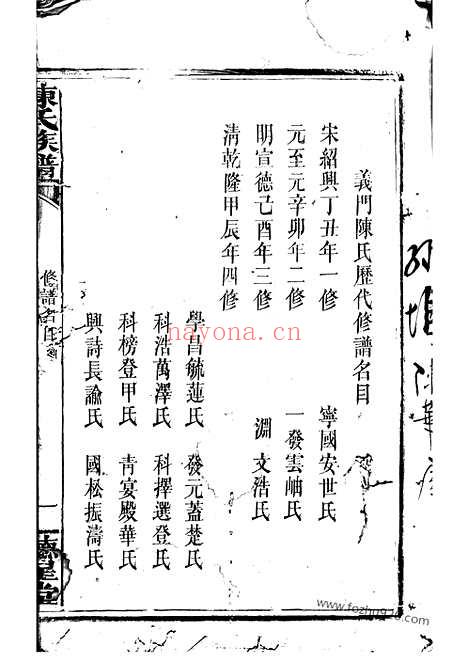 義門陳氏歷代修譜名目
宋紹興丁丑年一修 寧國安世氏
元至元辛卯年二修 一發雲岫氏
明宣德己酉年三修 淵文浩氏
清乾隆甲辰年四修
學昌毓蓮氏 發元蓋楚氏
科浩萬澤氏 科擇選登氏
科榜登甲氏 青宴殿華氏
興詩長諭氏 國松振濤氏
陳氏族譜
修譜名目
一
德星堂
nayona.cn
www.fozhu920.com